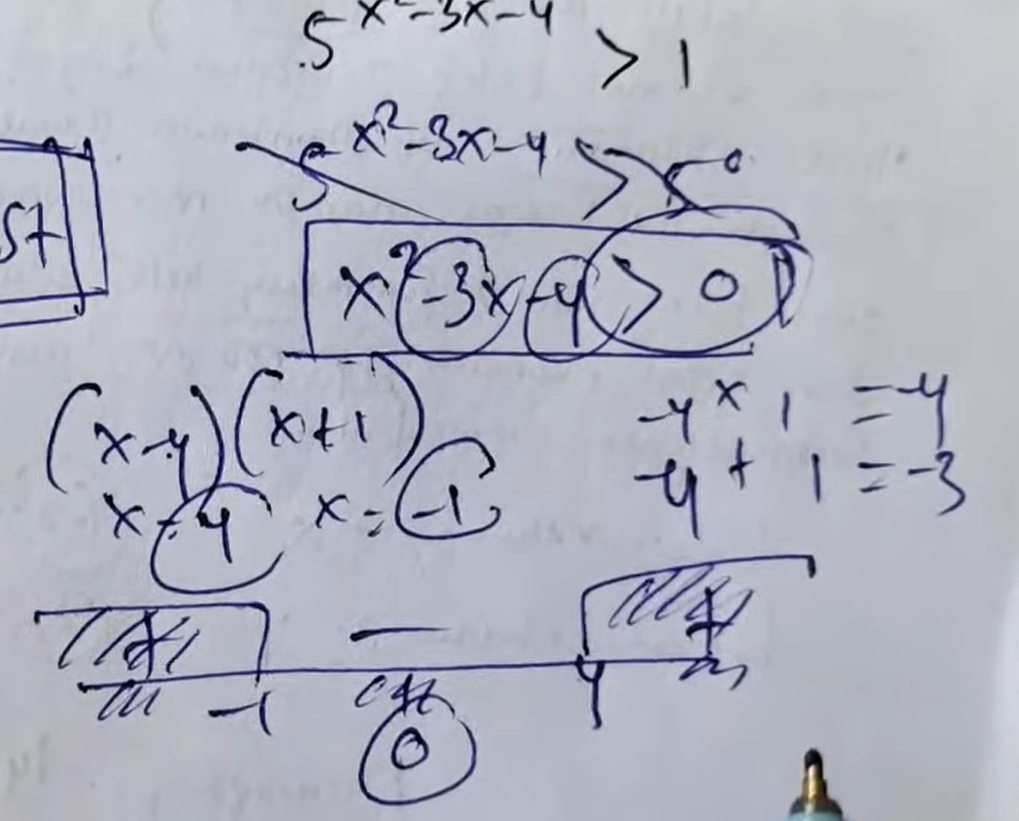 5^x²-3x-4 > 1
5^x²-3x-4 > 5^0
st
x²-3x-4 > 0
(x-4)(x+1) -4 × 1 = -4
x=4 x=-1 -4 + 1 = -3
+ — +
-1 4
0